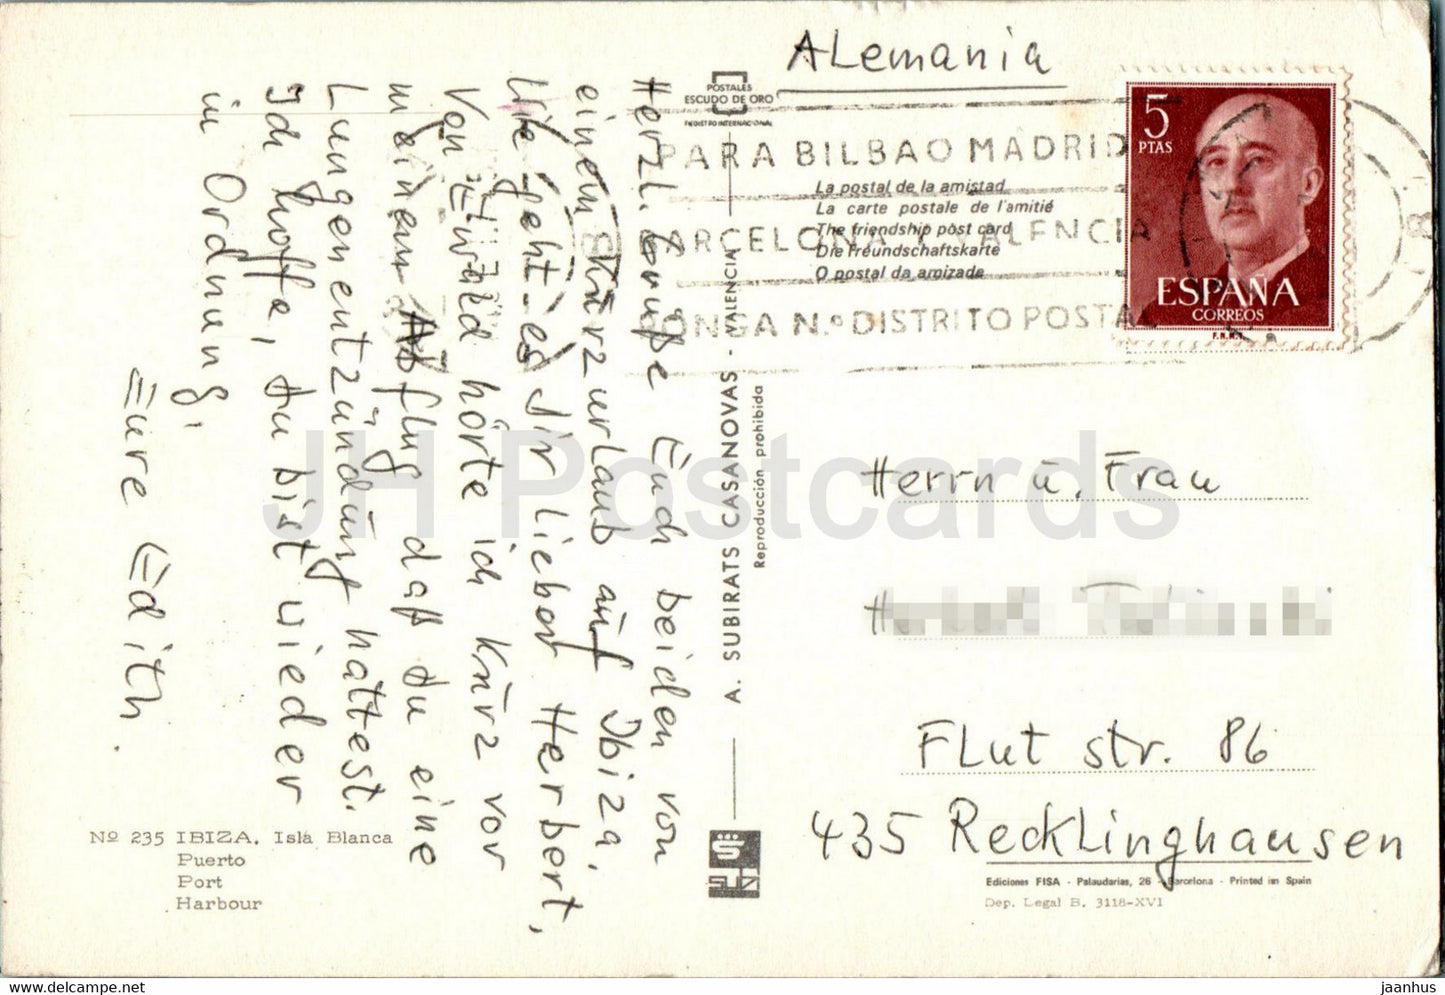 Herzl. Grüße Euch beiden von
einem Kurzurlaub auf Ibiza.
Wie geht es dir lieber Herbert,
Von Ewald hörte ich kurz vor
meinem Abflug daß du eine
Lungenentzündung hattest.
Ich hoffe, du bist wieder
in Ordnung,
Eure Edith.
Nº 235 IBIZA. Isla Blanca
Puerto
Port
Harbour
POSTALES
ESCUDO DE ORO
REGISTRO INTERNACIONAL
A. SUBIRATS CASANOVAS - VALENCIA
Reproducción prohibida
SUD
ALemania
PARA BILBAO MADRID
BARCELONA Y VALENCIA
PONGA N.º DISTRITO POSTAL
La postal de la amistad
La carte postale de l'amitié
The friendship post card
Die Freundschaftskarte
O postal da amizade
5
PTAS
ESPAÑA
CORREOS
F.N.M.T.
Herrn u. Frau
Flutstr. 86
435 Recklinghausen
Ediciones FISA - Palaudarias, 26 - Barcelona - Printed in Spain
Dep. Legal B. 3118-XVI
JH Postcards
hip-new.myshopify.com
jaanhus